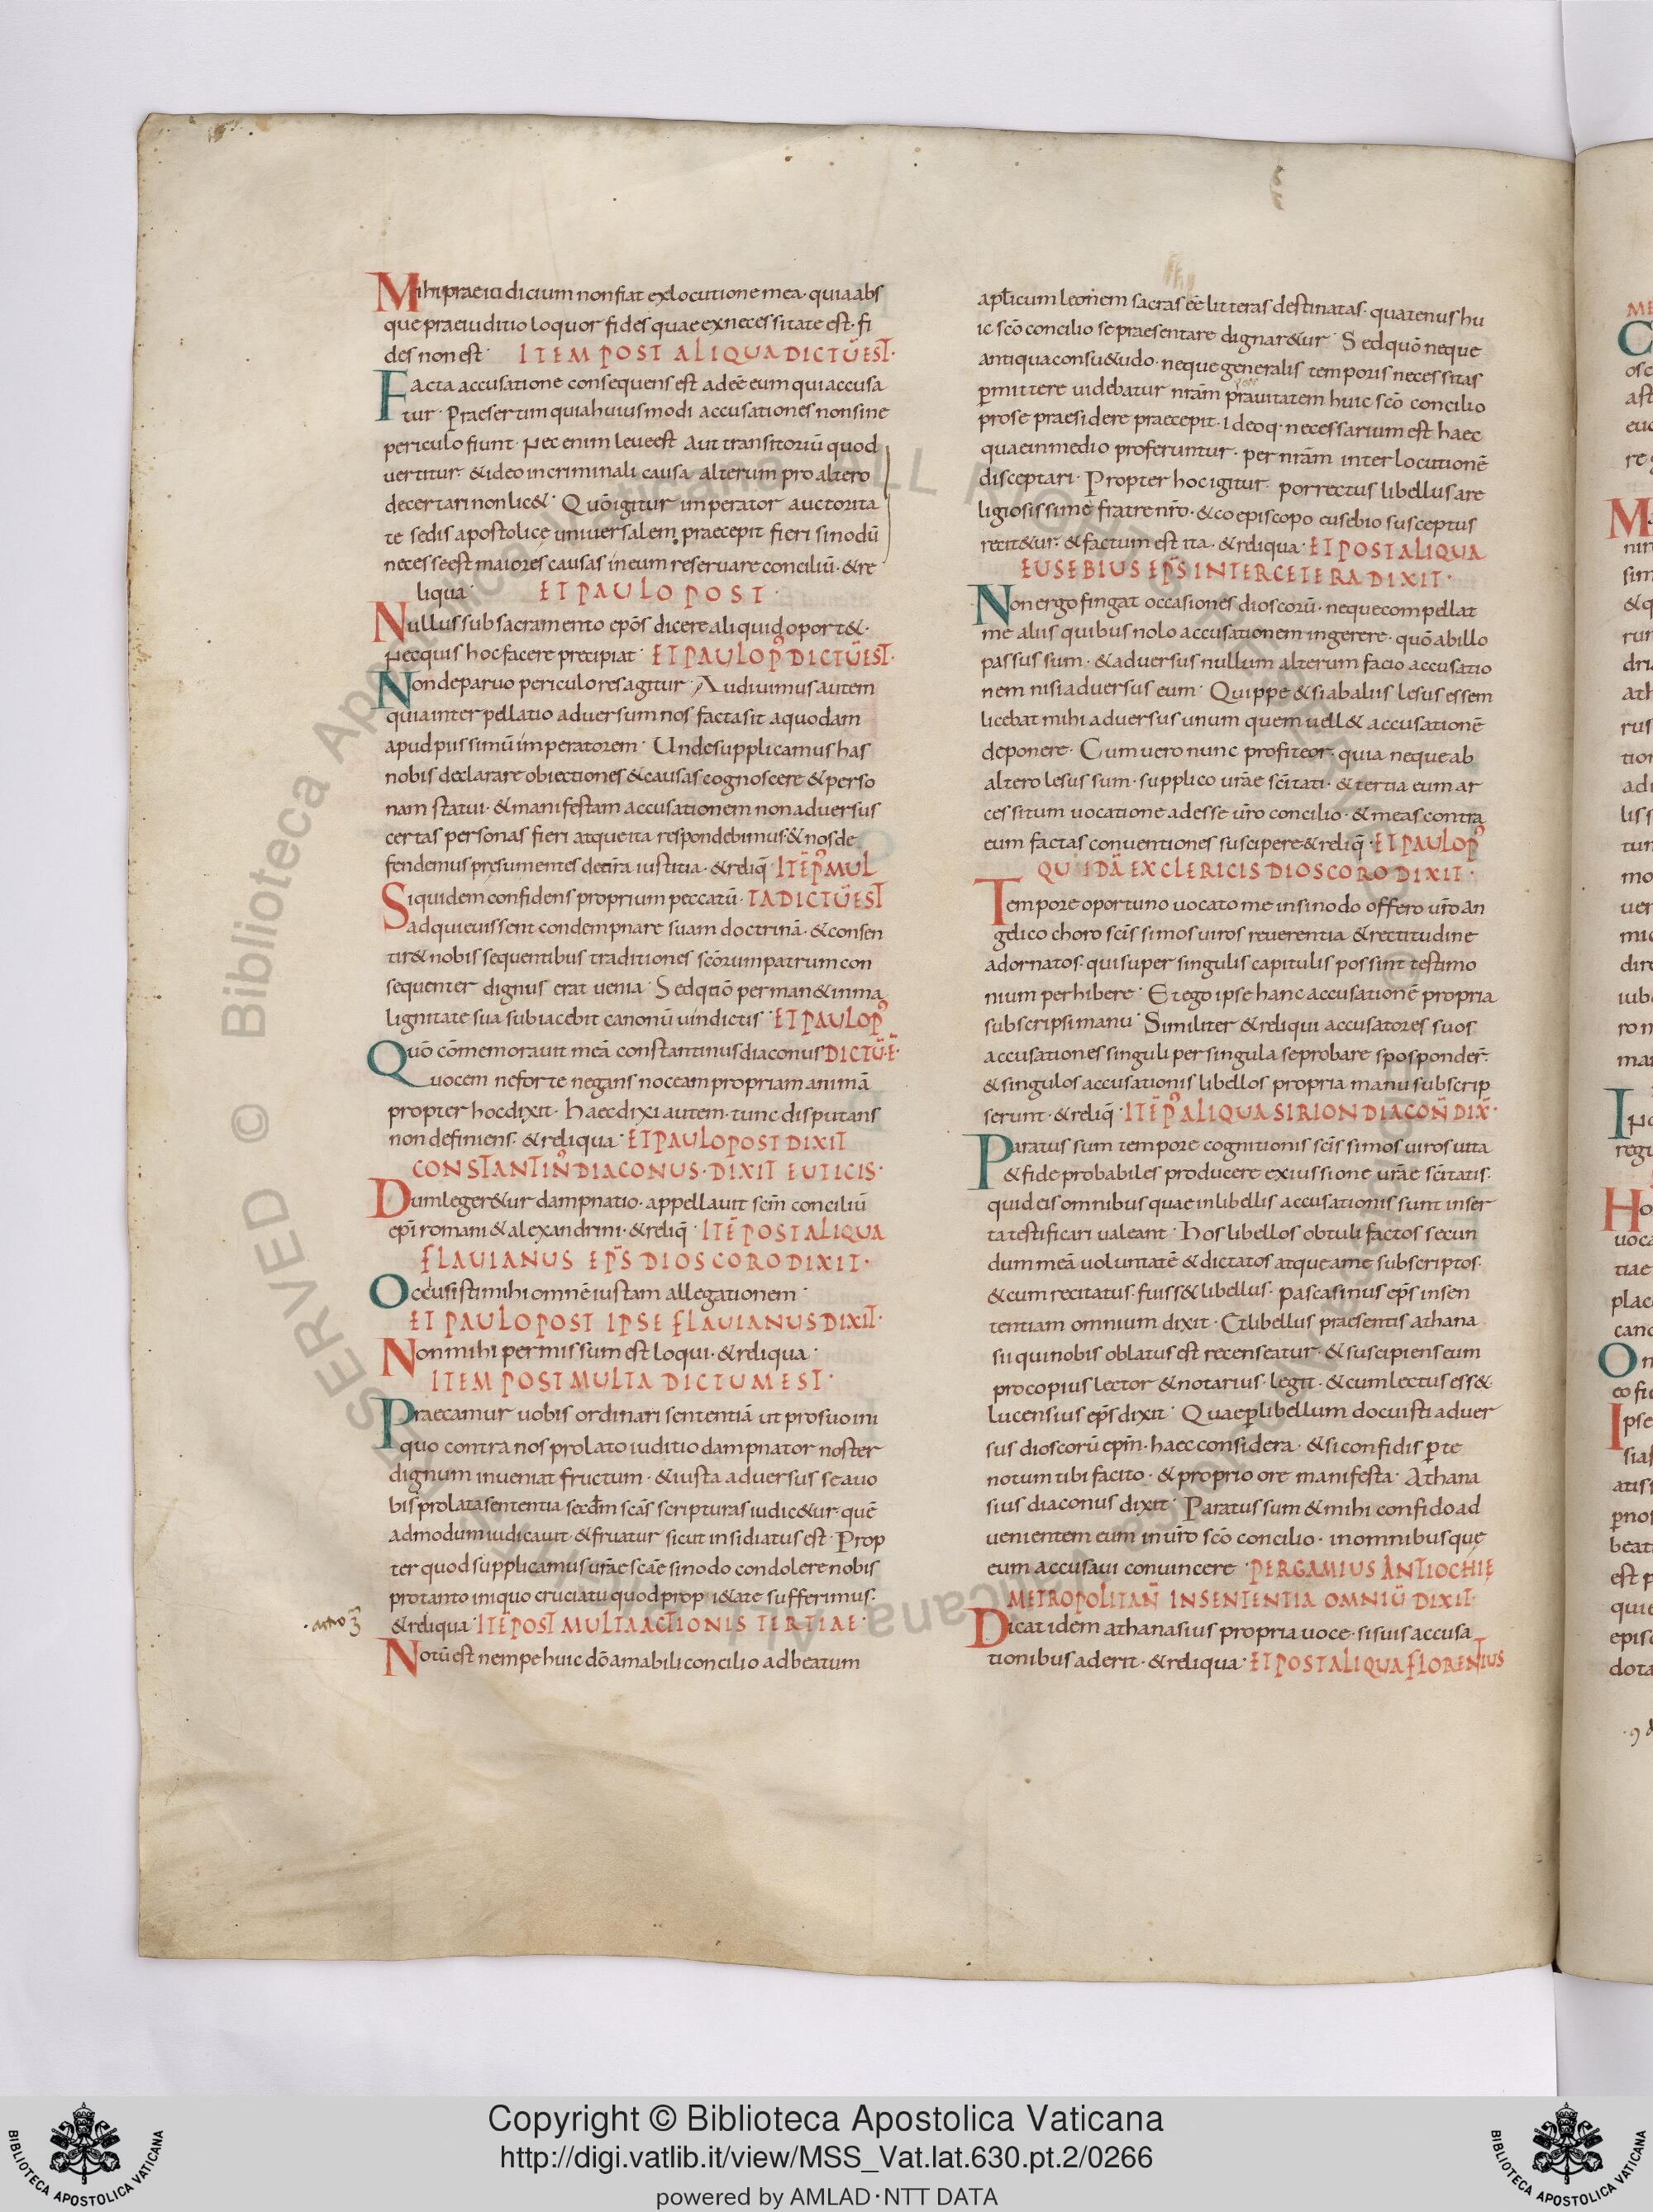 Mihi praeiudicium non fiat ex locutione mea · quia abs
que praeiuditio loquor fides quae ex necessitate est · fi
des non est · ITEM POST ALIQUA DICTŪ EST ·
Facta accusatione consequens est adeē eum qui accusa
tur · Praesertim quia huiusmodi accusationes non sine
periculo fiunt · Nec enim leue est aut transitoriū quod
uertitur · & ideo in criminali causa alterum pro altero
decertari non lic& · Quō igitur imperator auctorita
te sedis apostolice uniuersalem praecepit fieri sinodū
necesse est maiores causas in eum reseruare conciliū · & re
liqua · ET PAULO POST ·
Nullus sub sacramento ep̄os dicere aliquid oport& ·
Nec quis hoc facere precipiat · ET PAULO P' DICTŪ EST ·
Non de paruo periculo res agitur · Audiuimus autem
quia interpellatio aduersum nos facta sit a quodam
apud piissimū imperatorem · Unde supplicamus has
nobis declarare obiectiones & causas cognoscere & perso
nam statui · & manifestam accusationem non aduersus
certas personas fieri atque ita respondebimus · & nos de
fendemus presumentes de n̄ra iustitia · & reliq̄ · ITĒ P' MUL
Siquidem confidens proprium peccatū · TA DICTŪ EST
adquieuissent condempnare suam doctrinā · & consen
tir& nobis sequentibus traditiones sc̄orum patrum con
sequenter dignus erat uenia · Sed qūo perman& in ma
lignitate sua subiacebit canonū uindictis · ET PAULO P'
Quō cōmemorauit meā constantinus diaconus DICTŪ · Ē ·
uocem ne forte negans noceam propriam animā
propter hoc dixit · haec dixi autem · tunc disputans
non definiens · & reliqua · ET PAULO POST DIXIT
CONSTANTIN' DIACONUS · DIXIT EUTICIS ·
Dum leger&ur dampnatio · appellauit sc̄m conciliū
ep̄i romani & alexandrini · & reliq̄ · ITĒ POST ALIQUA
FLAUIANUS EP̄S DIOSCORO DIXIT ·
Occusisti mihi omnē iustam allegationem ·
ET PAULO POST IPSE FLAUIANUS DIXIT ·
Non mihi permissum est loqui · & reliqua ·
ITEM POST MULTA DICTUM EST ·
Praecamur uobis ordinari sententiā ut pro suo ini
quo contra nos prolato iuditio dampnator noster
dignum inueniat fructum · & iusta aduersus se a uo
bis prolata sententia sec̄dm sc̄as scripturas iudic&ur · quē
admodum iudicauit & fruatur sicut insidiatus est · Prop
ter quod supplicamus ur̄ae sc̄ae sinodo condolere nobis
pro tanto iniquo cruciatu quod prop i&ate sufferimus ·
& reliqua · ITĒ POST MULTA ACTIONIS TERTIAE ·
· actio 3
Notū est nempe huic d̄o amabili concilio ad beatum
apl̄icum leonem sacras eē litteras destinatas · quatenus hu
ic sc̄o concilio se praesentare dignar&ur · Sed quō neque
antiqua consu&udo · neque generalis temporis necessitas
p̱mittere uidebatur nr̄am prauitatem huic sc̄o concilio
pro se praesidere praecepit · Ideoq · necessarium est haec
quae in medio proferuntur · per nr̄am interlocutionē
disceptari · Propter hoc igitur porrectus libellus a re
ligiosissime fratre nr̄o · & coepiscopo eusebio susceptus
recit&ur · & factum est ita · & reliqua · ET POST ALIQUA
EUSEBIUS EP̄S INTER CETERA DIXIT ·
Non ergo fingat occasiones dioscorū · neque compellat
me aliis quibus nolo accusationem ingerere · quō ab illo
passus sum · & aduersus nullum alterum facio accusatio
nem nisi aduersus eum · Quippe & si ab aliis lesus essem
licebat mihi aduersus unum quem uell& accusationē
deponere · Cum uero nunc profiteor · quia neque ab
altero lesus sum · supplico ur̄ae sc̄itati · & tertia eum ar
cessitum uocatione adesse ur̄o concilio · & meas contra
eum factas conuentiones suscipere & reliq̄ · ET PAULO P'
QUIDĀ EX CLERICIS DIOSCORO DIXIT ·
Tempore oportuno uocato me in sinodo offero ur̄o an
gelico choro sc̄issimos uiros reuerentia & rectitudine
adornatos · qui super singulis capitulis possint testimo
nium perhibere · Et ego ipse hanc accusationē propria
subscripsi manu · Similiter & reliqui accusatores suos
accusationes singuli per singula se probare sposponder̄ ·
& singulos accusationis libellos propria manu subscrip
serunt · & reliq̄ · ITĒ P' ALIQUA SIRION DIACON̄ DIX̄ ·
Paratus sum tempore cognitionis sc̄issimos uiros uita
& fide probabiles producere ex iussione ur̄ae sc̄itatis ·
qui deis omnibus quae in libellis accusationis sunt inser
ta testificari ualeant · hos libellos obtuli factos secun
dum meā uoluntatē & dictatos atque a me subscriptos ·
& cum recitatus · fuiss& libellus · pascasinus ep̄s in sen
tentiam omnium dixit · Et libellus praesentis athana
sii qui nobis oblatus est recenseatur · & suscipiens eum
procopius lector & notarius · legit · & cum lectus ess& ·
lucensius ep̄s dixit · Quae p̱ libellum docuisti aduer
sus dioscorū ep̄m · haec considera · & si confidis p̱ te
notum tibi facito · & proprio ore manifesta · Athana
sius diaconus dixit · Paratus sum & mihi confido ad
uenientem eum in ur̄o sc̄o concilio · in omnibus quę
eum accusaui conuincere · PERGAMIUS ANTIOCHIĘ
METROPOLITAN̄ IN SENTENTIA OMNIŪ DIXIT ·
Dicat idem athanasius propria uoce · si suis accusa
tionibus aderit · & reliqua · ET POST ALIQUA FLORENTIUS
Copyright © Biblioteca Apostolica Vaticana
http://digi.vatlib.it/view/MSS_Vat.lat.630.pt.2/0266
powered by AMLAD·NTT DATA
BIBLIOTECA APOSTOLICA VATICANA
BIBLIOTECA APOSTOLICA VATICANA